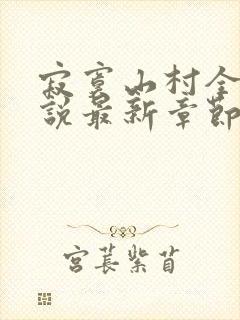 寂寞山村全
說最新章節
宮萇紫苜